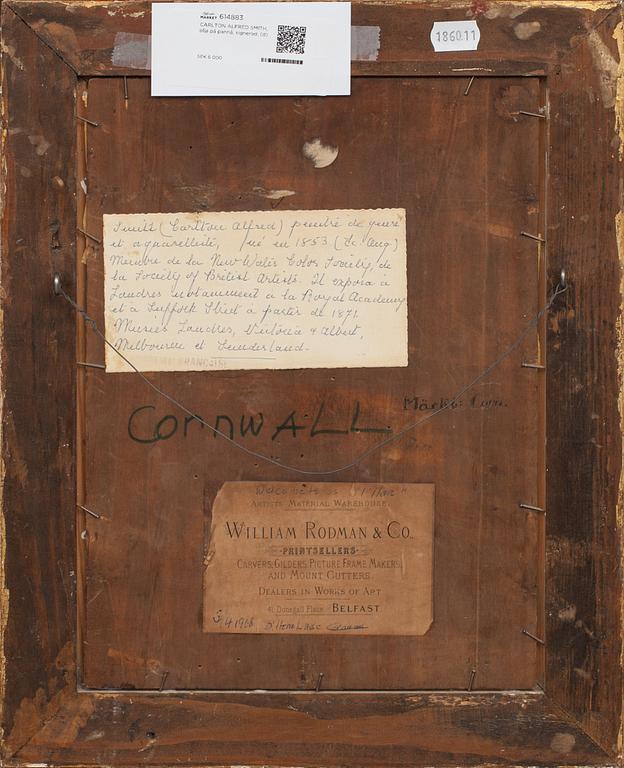 MARKET 614883
CARLTON ALFRED SMITH,
olja på pannå, signerad, (d)
SEK 6 000
1860.11
Smith (Carlton Alfred) peintre de genre
et aquarelliste, né en 1853 (Ec. Ang.)
Membre de la New Water Color Society, de
la Society of British Artists. Il exposa à
Londres notamment à la Royal Academy
et à Suffolk Street à partir de 1871.
Musées Londres, Victoria & Albert,
Melbourne et Sunderland.
FRANÇAISE
Märkt:
CornwALL
ARTISTS MATERIAL WAREHOUSE.
WILLIAM RODMAN & CO.
PRINTSELLERS
CARVERS, GILDERS, PICTURE FRAME MAKERS,
AND MOUNT CUTTERS
DEALERS IN WORKS OF ART
41 Donegall Place BELFAST